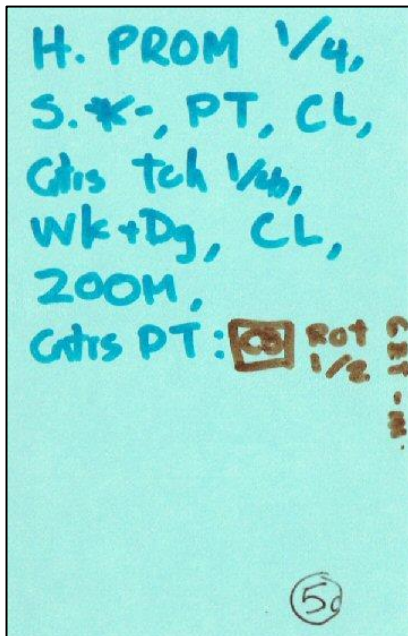 H. PROM 1/4,
S. *-, PT, CL,
Cntrs Tch 1/4,
Wk+Dg, CL,
ZOOM,
Cntrs PT:
Rot
1/2
5d